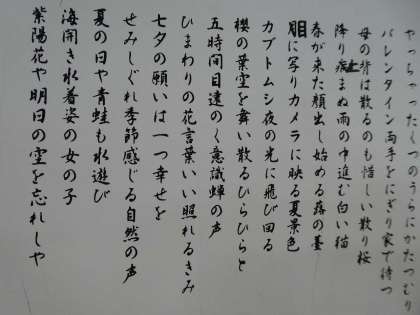 やっちゃったくつのうらにかたつむり
バレンタイン両手をにぎり家で待つ
母の背は散るのも惜しい散り桜
降り病まぬ雨の中進む白い猫
春が来た顔出し始める蕗の薹
眼に写りカメラに映る夏景色
カブトムシ夜の光に飛び回る
櫻の葉空を舞い散るひらひらと
五時間目遠のく意識蝉の声
ひまわりの花言葉いい照れるきみ
七夕の願いは一つ幸せを
せみしぐれ季節感じる自然の声
夏の日や青蛙も水遊び
海開き水着姿の女の子
紫陽花や明日の空を忘れしや